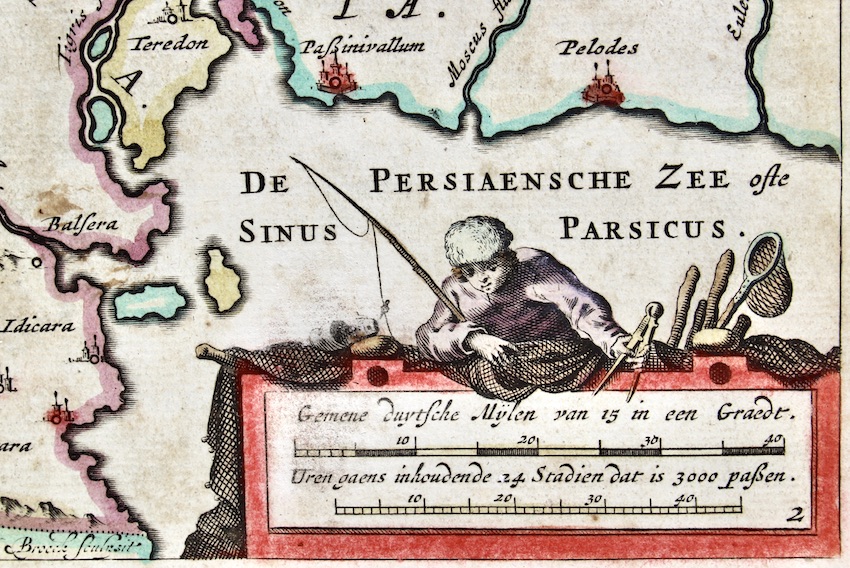 Tigris
Teredon
I A.
A.
Paßinivallum
Moscus
Pelodes
Eule
DE PERSIAENSCHE ZEE ofte
SINUS PARSICUS.
Balsera
Idicara
ara
Gemene duytsche Mÿlen van 15 in een Graedt.
10 20 30 40
Uren gaens inhoudende 24 Stadien dat is 3000 paßen.
10 20 30 40
2
sculpsit